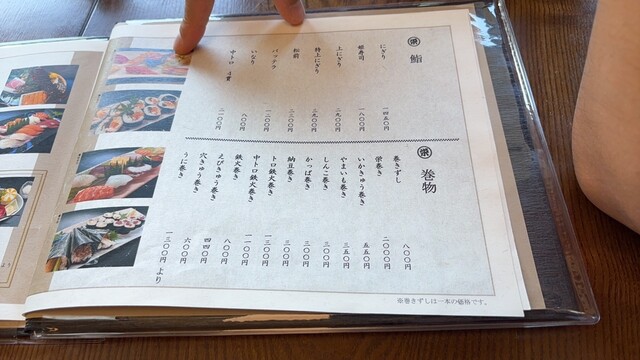 栄 鮨
にぎり 一四五〇円
姫寿司 一八〇〇円
上にぎり
特上にぎり 二九〇〇円
松前 二三〇〇円
バッテラ 一二〇〇円
いなり 八〇〇円
中トロ 4貫 二一〇〇円
栄 巻物
巻きずし 八〇〇円
栄巻き 二〇〇〇円
いかきゅう巻き 五五〇円
やまいも巻き 三五〇円
しんこ巻き 三〇〇円
かっぱ巻き 三〇〇円
納豆巻き 三〇〇円
トロ鉄火巻き 一三〇〇円
中トロ鉄火巻き 一一〇〇円
鉄火巻き 八〇〇円
えびきゅう巻き 四四〇円
穴きゅう巻き 六〇〇円
うに巻き 一三〇〇円より
※巻きずしは一本の価格です。